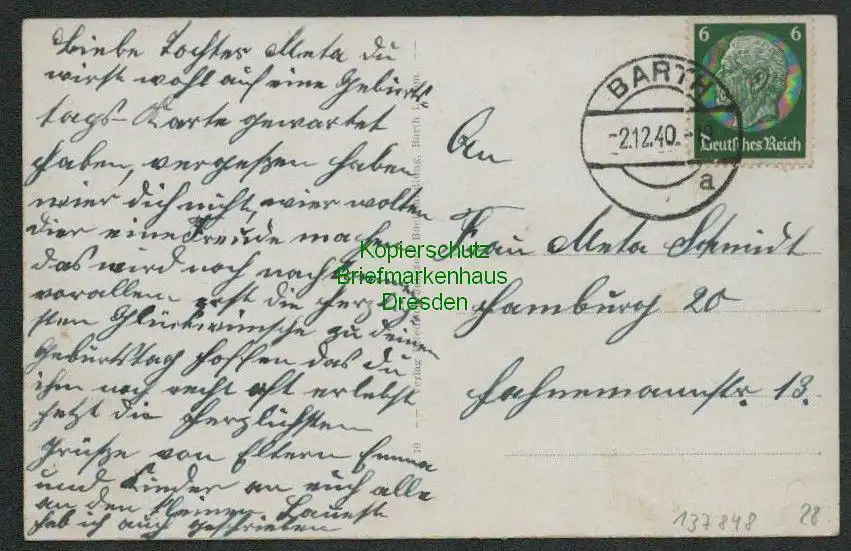 Liebe Tochter Meta du
wirst wohl auf eine Geburts
tags-Karte gewartet
haben, vergeßen haben
wier dich nicht, wier wolten
dier eine Freude machen
das wird noch nach
vorallem erst die herzlich
sten Glückwünsche zu deinem
Geburtstag hoffen das du
ihn noch recht oft erlebst
jetzt die herzlichsten
Grüße von Eltern Emma
und Kinder an euch alle
an den kleinen
hab ich auch geschrieben
An
Frau Meta Schmidt
Hamburg 20
Hahnemannstr. 13.
BARTH
-2.12.40.
a
6 6
Deutsches Reich
Kopierschutz
Briefmarkenhaus
Dresden
137848
28